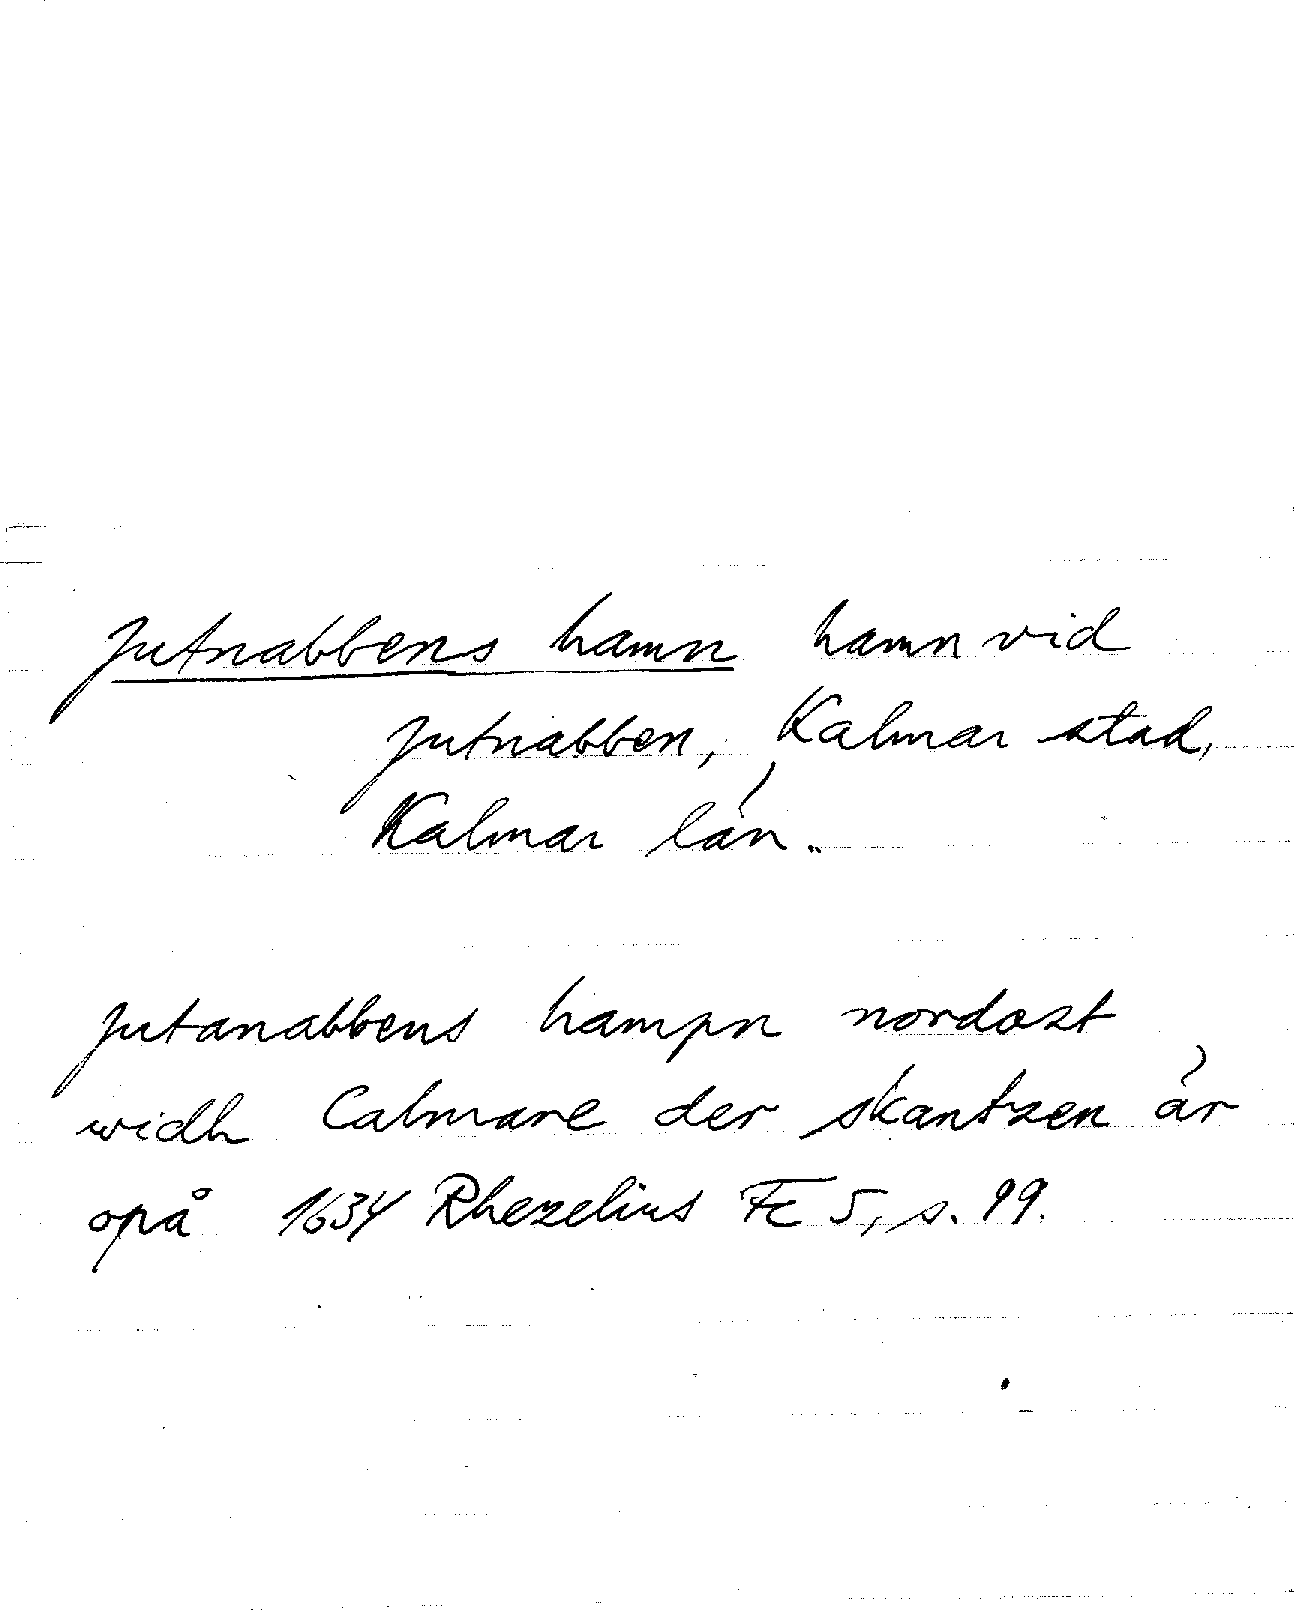 Jutnabbens hamn hamn vid
Jutnabben, Kalmar stad,
Kalmar län.
Jutanabbens hampn nordost
widh Calmare der skantzen är
opå 1634 Rhezelius Fc 5, s. 99.